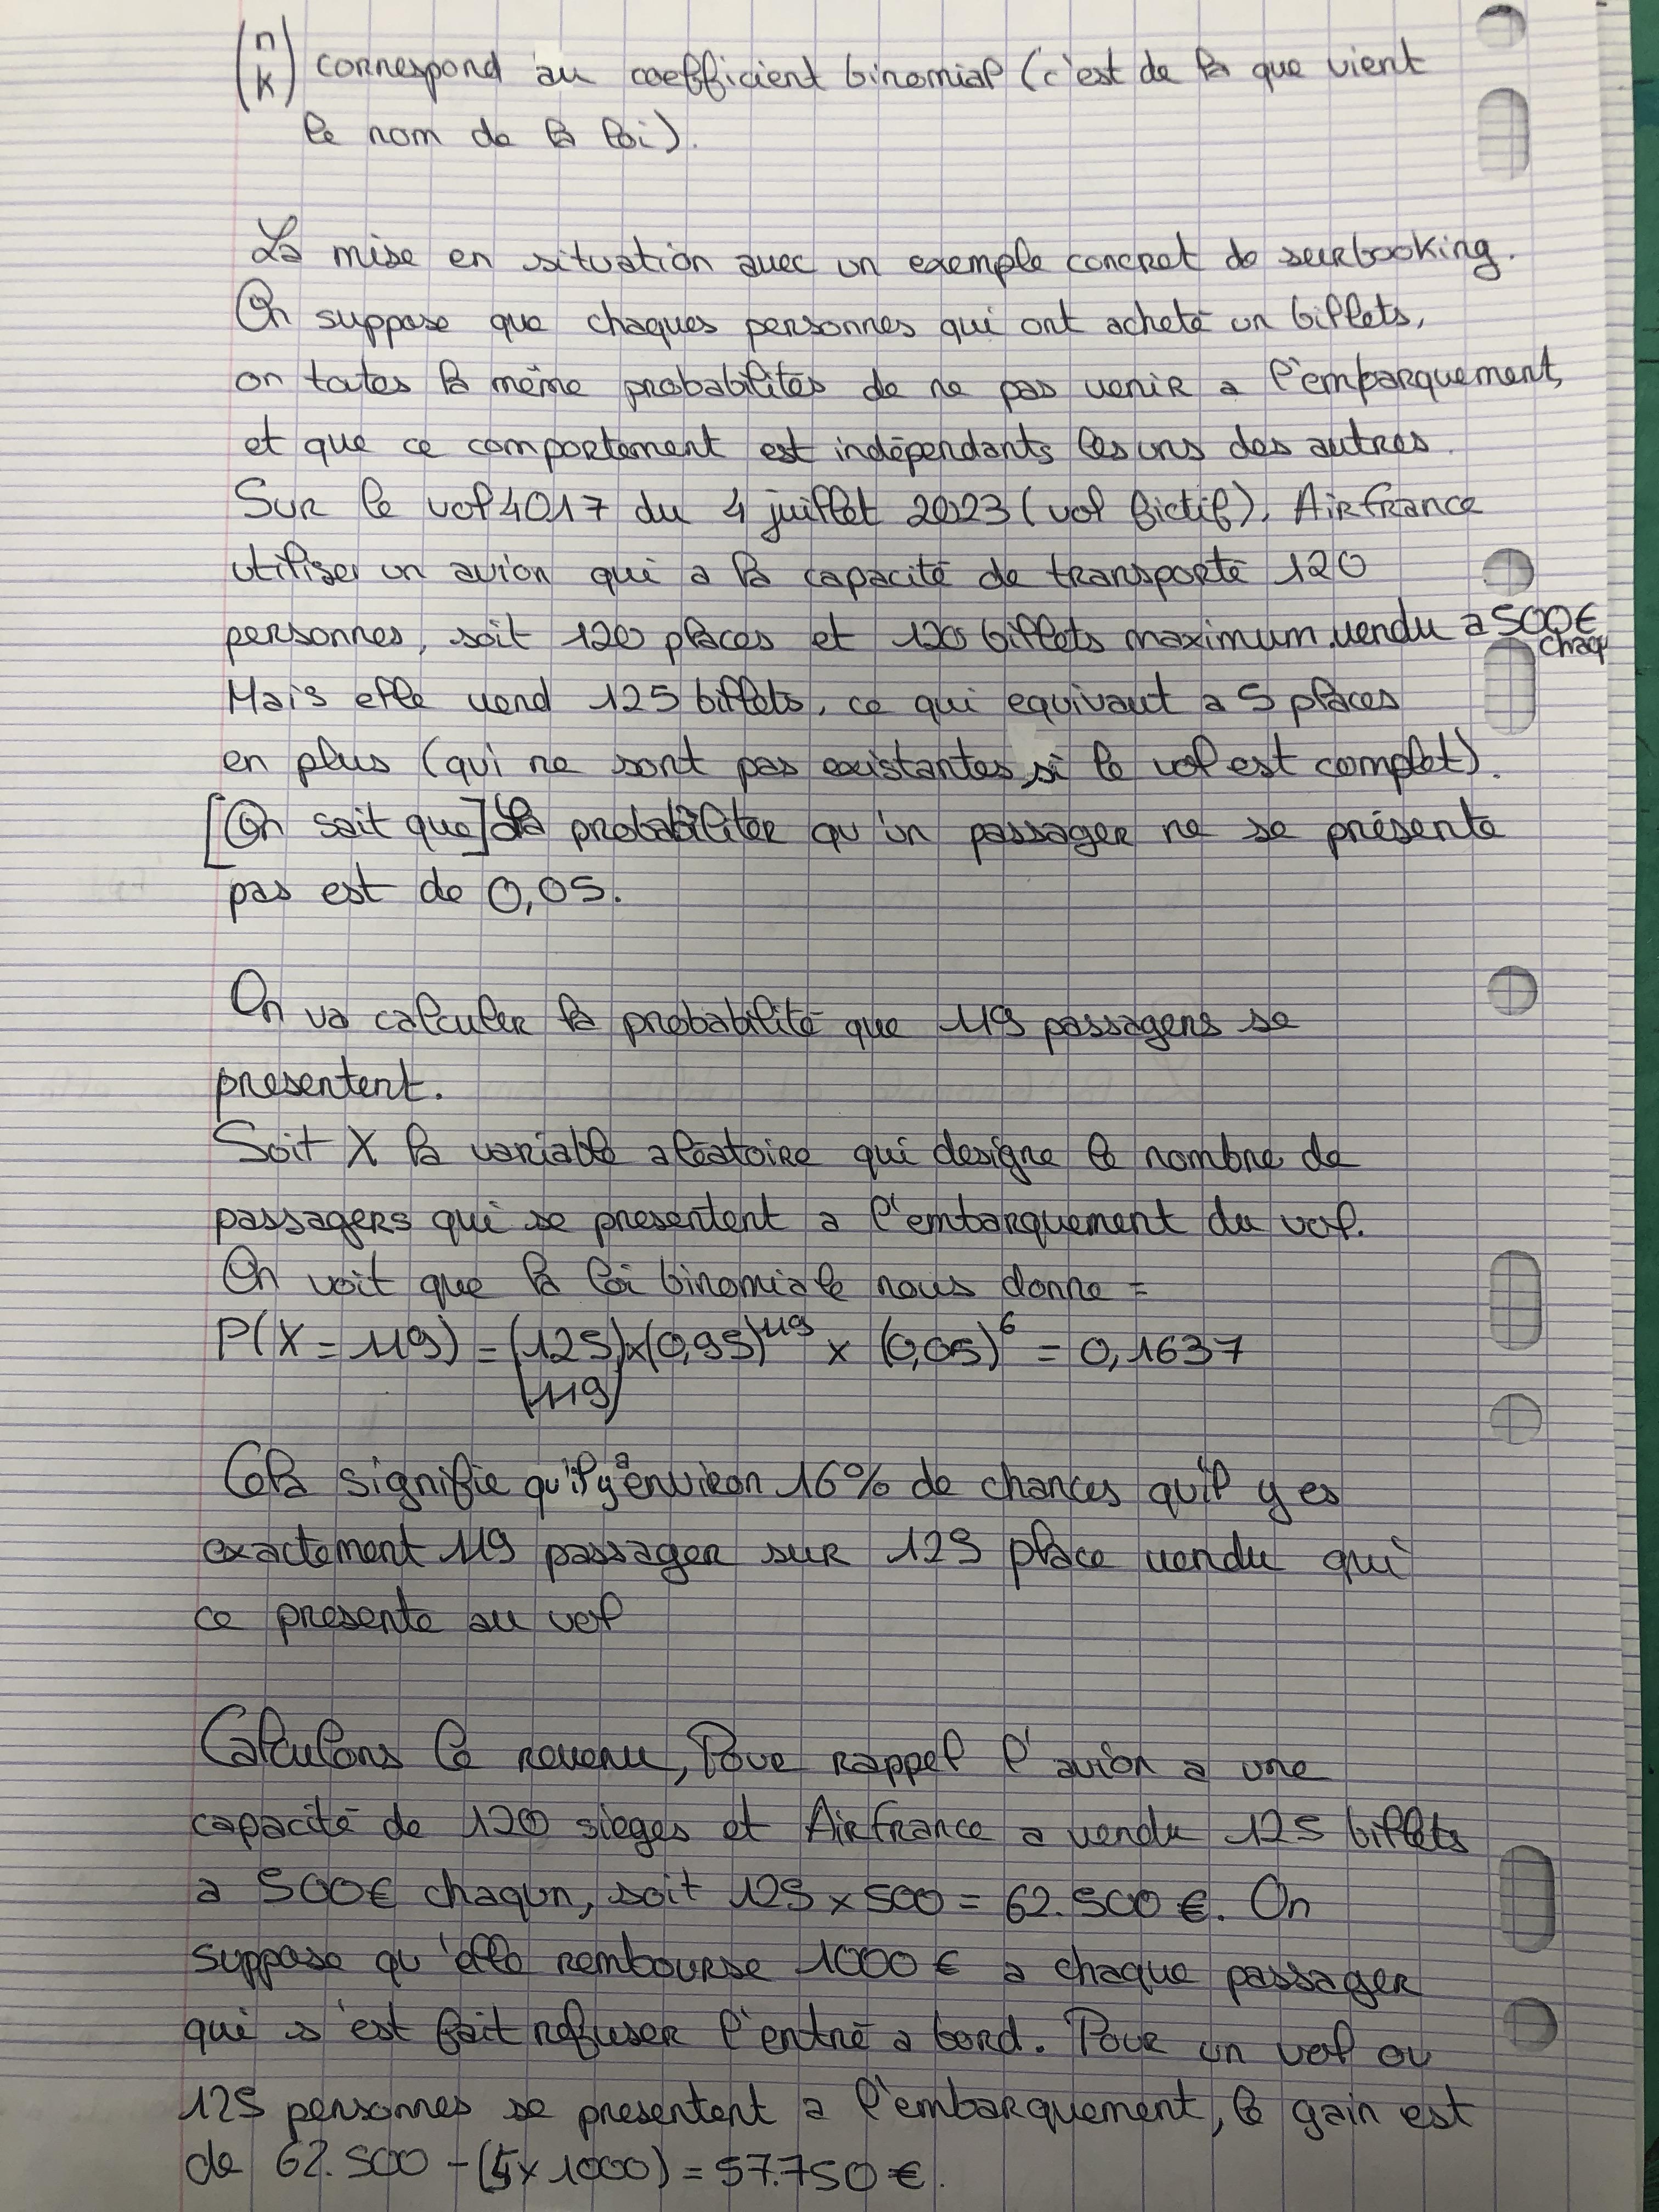 (n k) correspond au coefficient binomial (c'est de la que vient
le nom de la loi).
La mise en situation avec un exemple concret de surbooking.
On suppose que chaques personnes qui ont acheté un billets,
on toutes la même probabilités de ne pas venir a l'embarquement,
et que ce comportement est indépendants les uns des autres.
Sur le vol 4017 du 4 juillet 2023 (vol fictif). Air france
utiliser un avion qui a la capacité de transporté 120
personnes, soit 120 places et 120 billets maximum. vendu a 500€
chaq
Mais elle vend 125 billets, ce qui equivaut a 5 places
en plus (qui ne sont pas existantes si le vol est complet).
[On sait que] La probabiliter qu'un passager ne se présente
pas est de 0,05.
On va calculer la probabilité que 119 passagers se
presentent.
Soit X la variable aléatoire qui designe le nombre de
passagers qui se presentent a l'embarquement du vol.
On voit que la loi binomiale nous donne =
P(X = 119) = (125 119) × (0,95)^119 × (0,05)^6 = 0,1637
Cela signifie qu'il y a environ 16% de chances qu'il y es
exactement 119 passager sur 125 place vendu qui
ce presente au vol
Calculons le revenu, Pour rappel l'avion a une
capacité de 120 sieges et Air france a vendu 125 billets
a 500€ chaqun, soit 125 × 500 = 62.500 €. On
suppose qu'elle rembourse 1000 € a chaque passager
qui s'est fait refuser l'entré a bord. Pour un vol ou
125 personnes se presentent a l'embarquement, le gain est
de 62.500 - (5 × 1000) = 57.750 €.